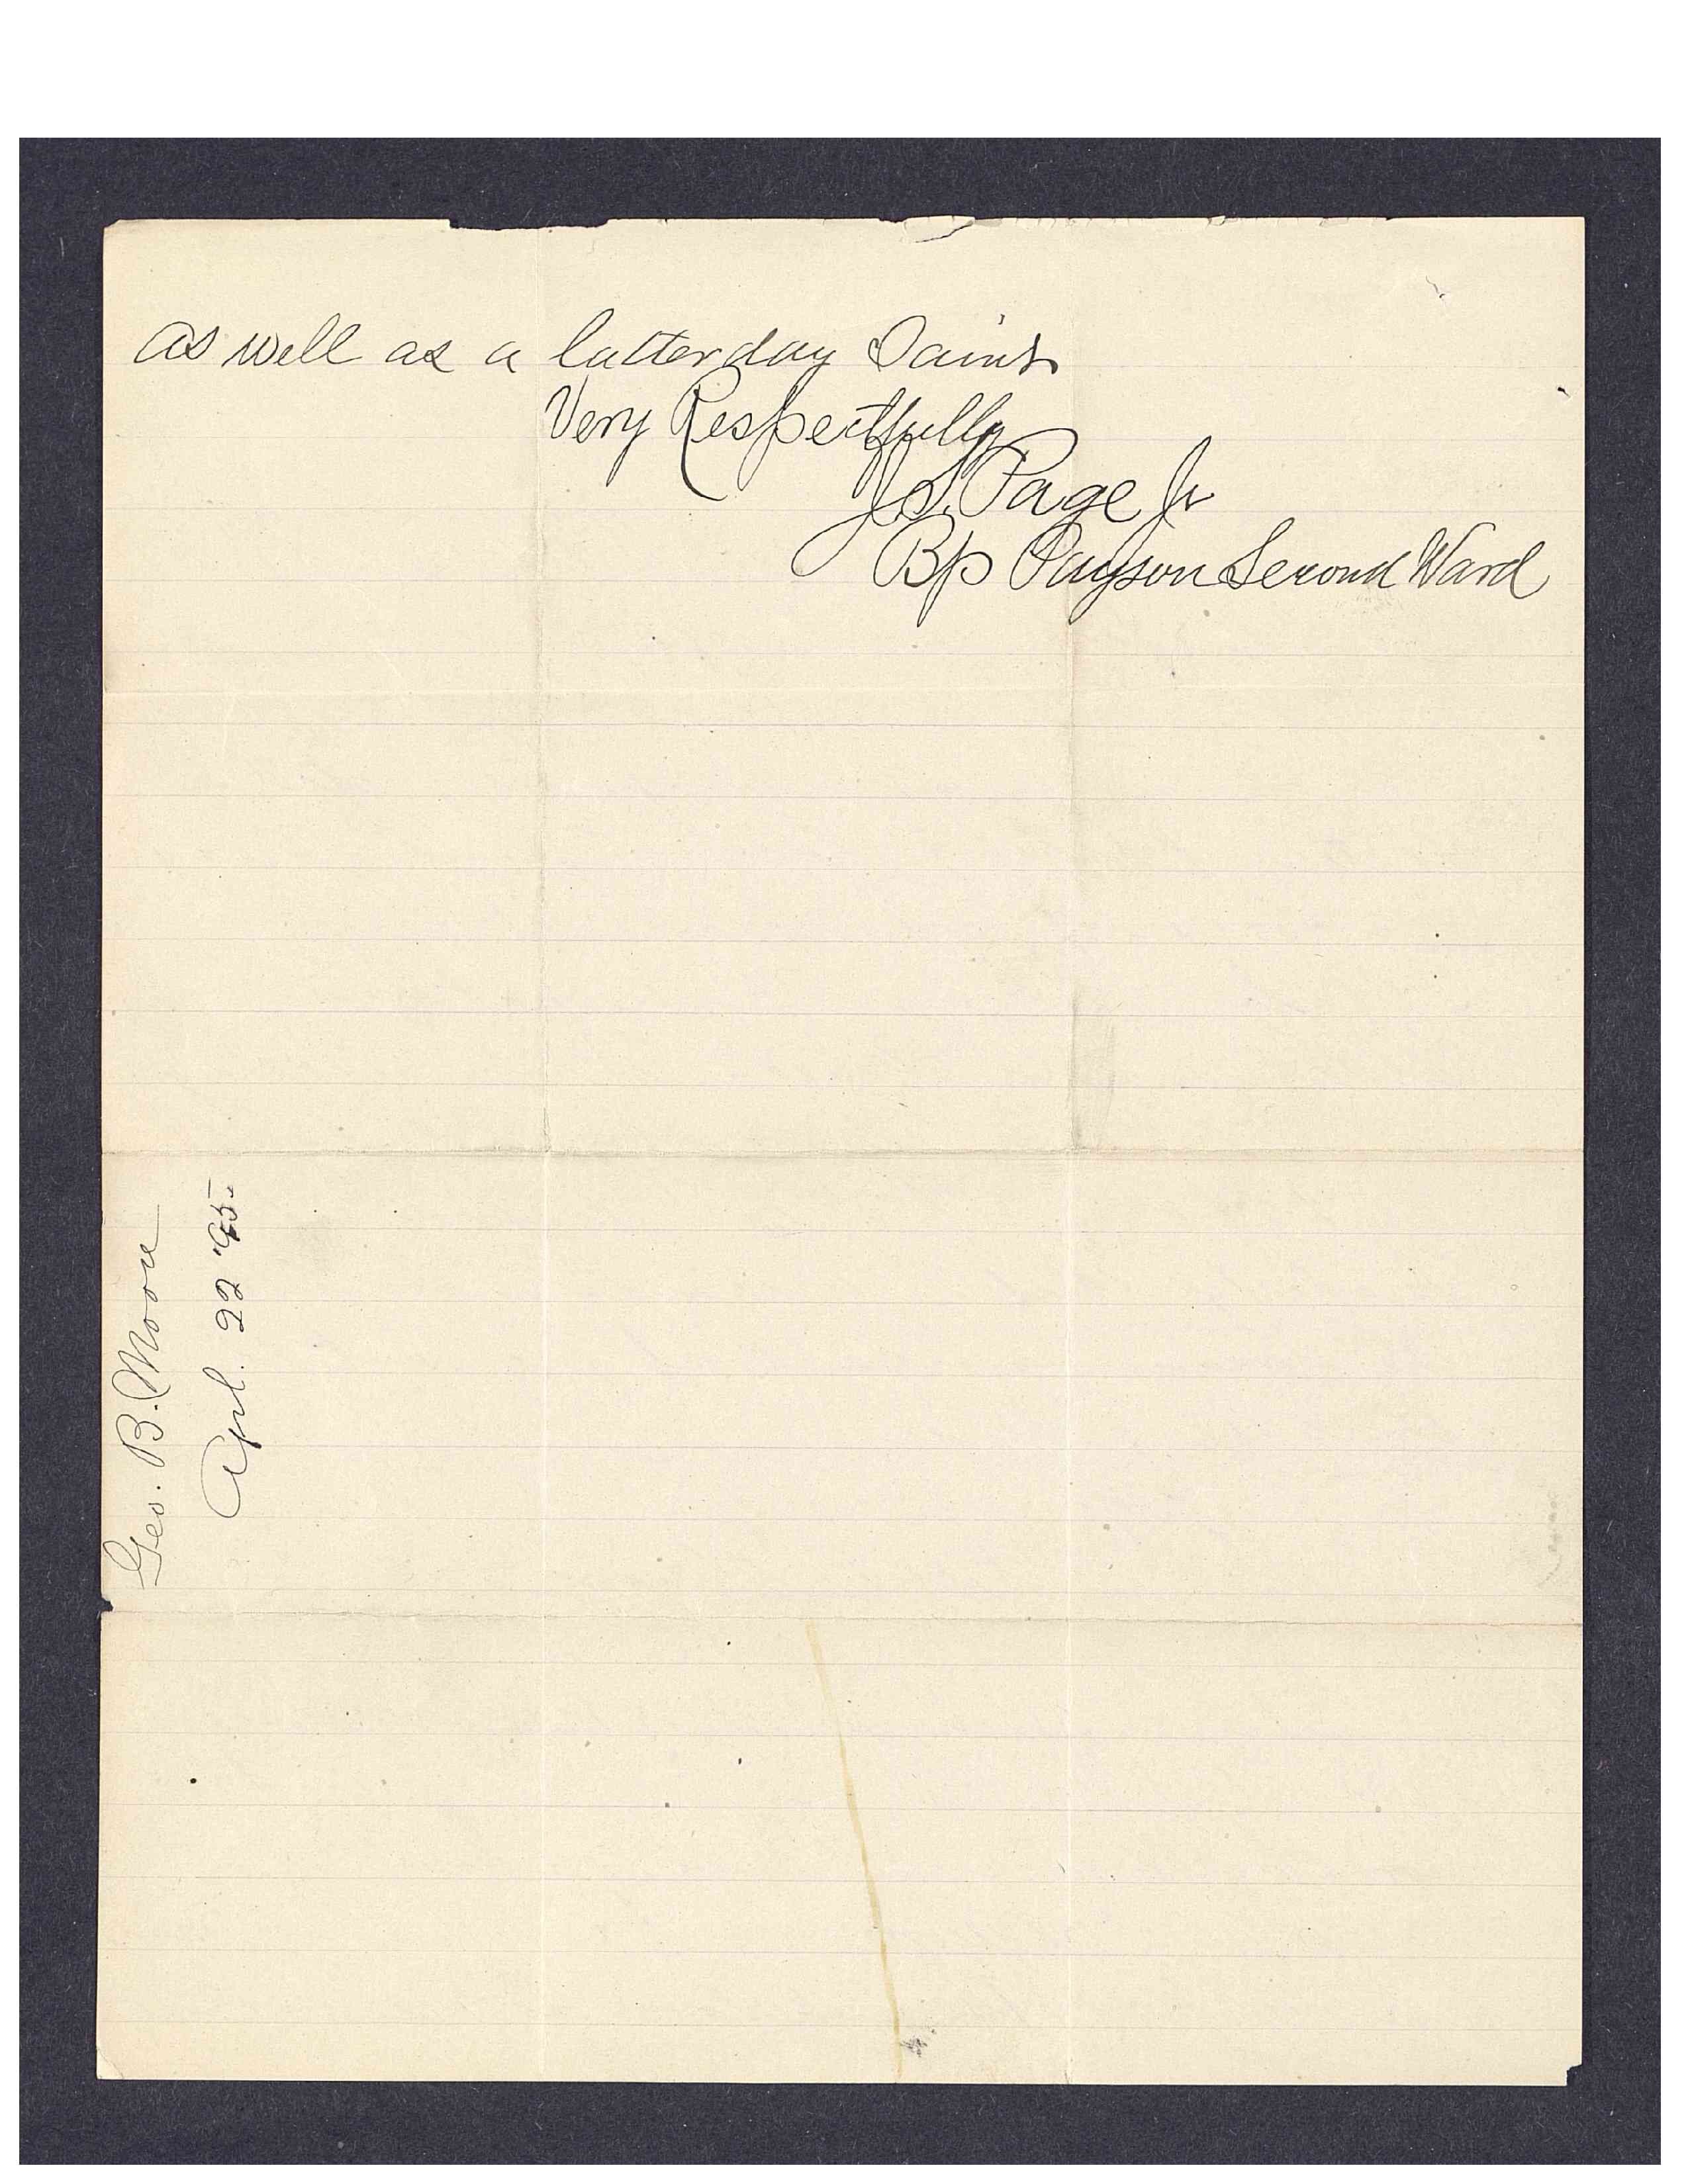 as well as a latter day Saint.
Very Respectfully
J.S. Page Jr
Bp Payson Second Ward
Geo. B. Moore
Apl. 22 '95.